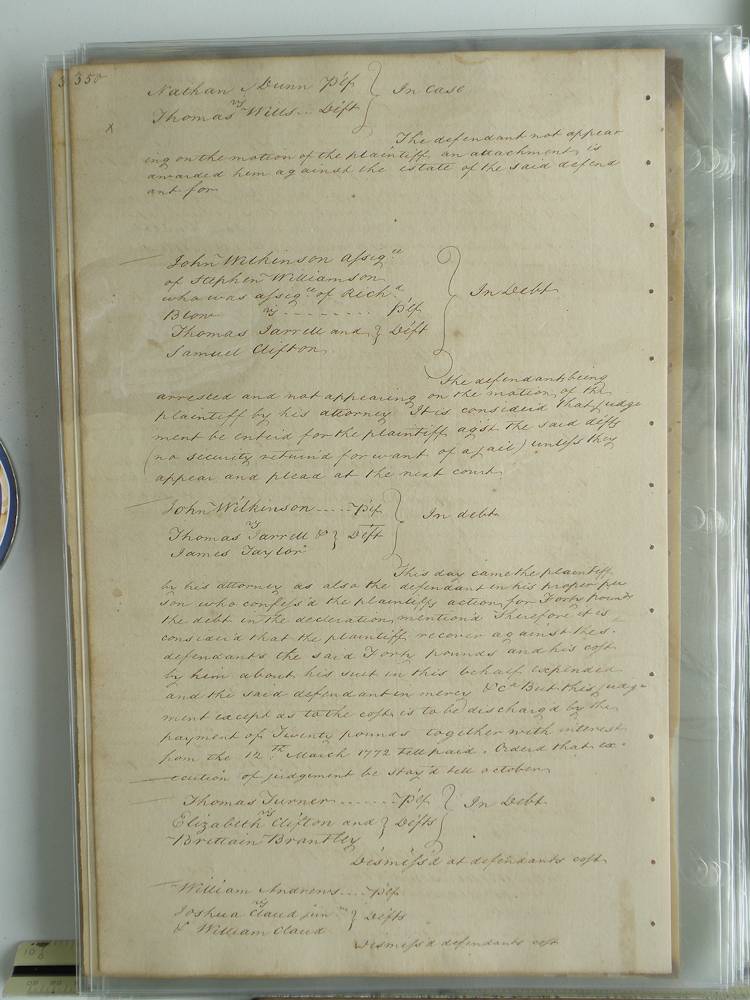 350
Nathan Dunn Plf
vs
Thomas Wills... Deft
} In Case
x
The defendant not appear
ing on the motion of the plaintiff an attachment is
awarded him against the estate of the said defend
ant for
John Wilkinson assigee
of Stephen Williamson
who was assigee of Richd
Blow vs - - - - - - - - Plf
Thomas Jarrell and } Deft
Samuel Clifton
} In Debt
The defendants being
arrested and not appearing on the motion of the
plaintiff by his attorney It is consider'd that judge
ment be enter'd for the plaintiff agst the said defts
(no security return'd for want of a jail) unless they
appear and plead at the next court
John Wilkinson ..... Plf
vs
Thomas Jarrell & } Deft
James Taylor
} In debt
This day came the plaintiff
by his attorney as also the defendant in his proper per
son who confess'd the plaintiffs action for Forty pounds
the debt in the declaration mention'd Therefore it is
consider'd that the plaintiff recover against the s.
defendants the said Forty pounds and his cost
by him about his suit in this behalf expended
and the said defendant in mercy &ca But this judge
ment except as to the costs is to be discharg'd by the
payment of Twenty pounds together with interest
from the 12th March 1772 till paid. Order'd that ex=
ecution of judgement be stay'd till october
Thomas Turner ...... Plf
vs
Elizabeth Clifton and } Defts
Brittain Brantley
} In Debt
Dismiss'd at defendants cost
William Andrews ... Plf
vs
Joshua Claud junr } Defts
& William Claud
Dismiss'd defendants cost